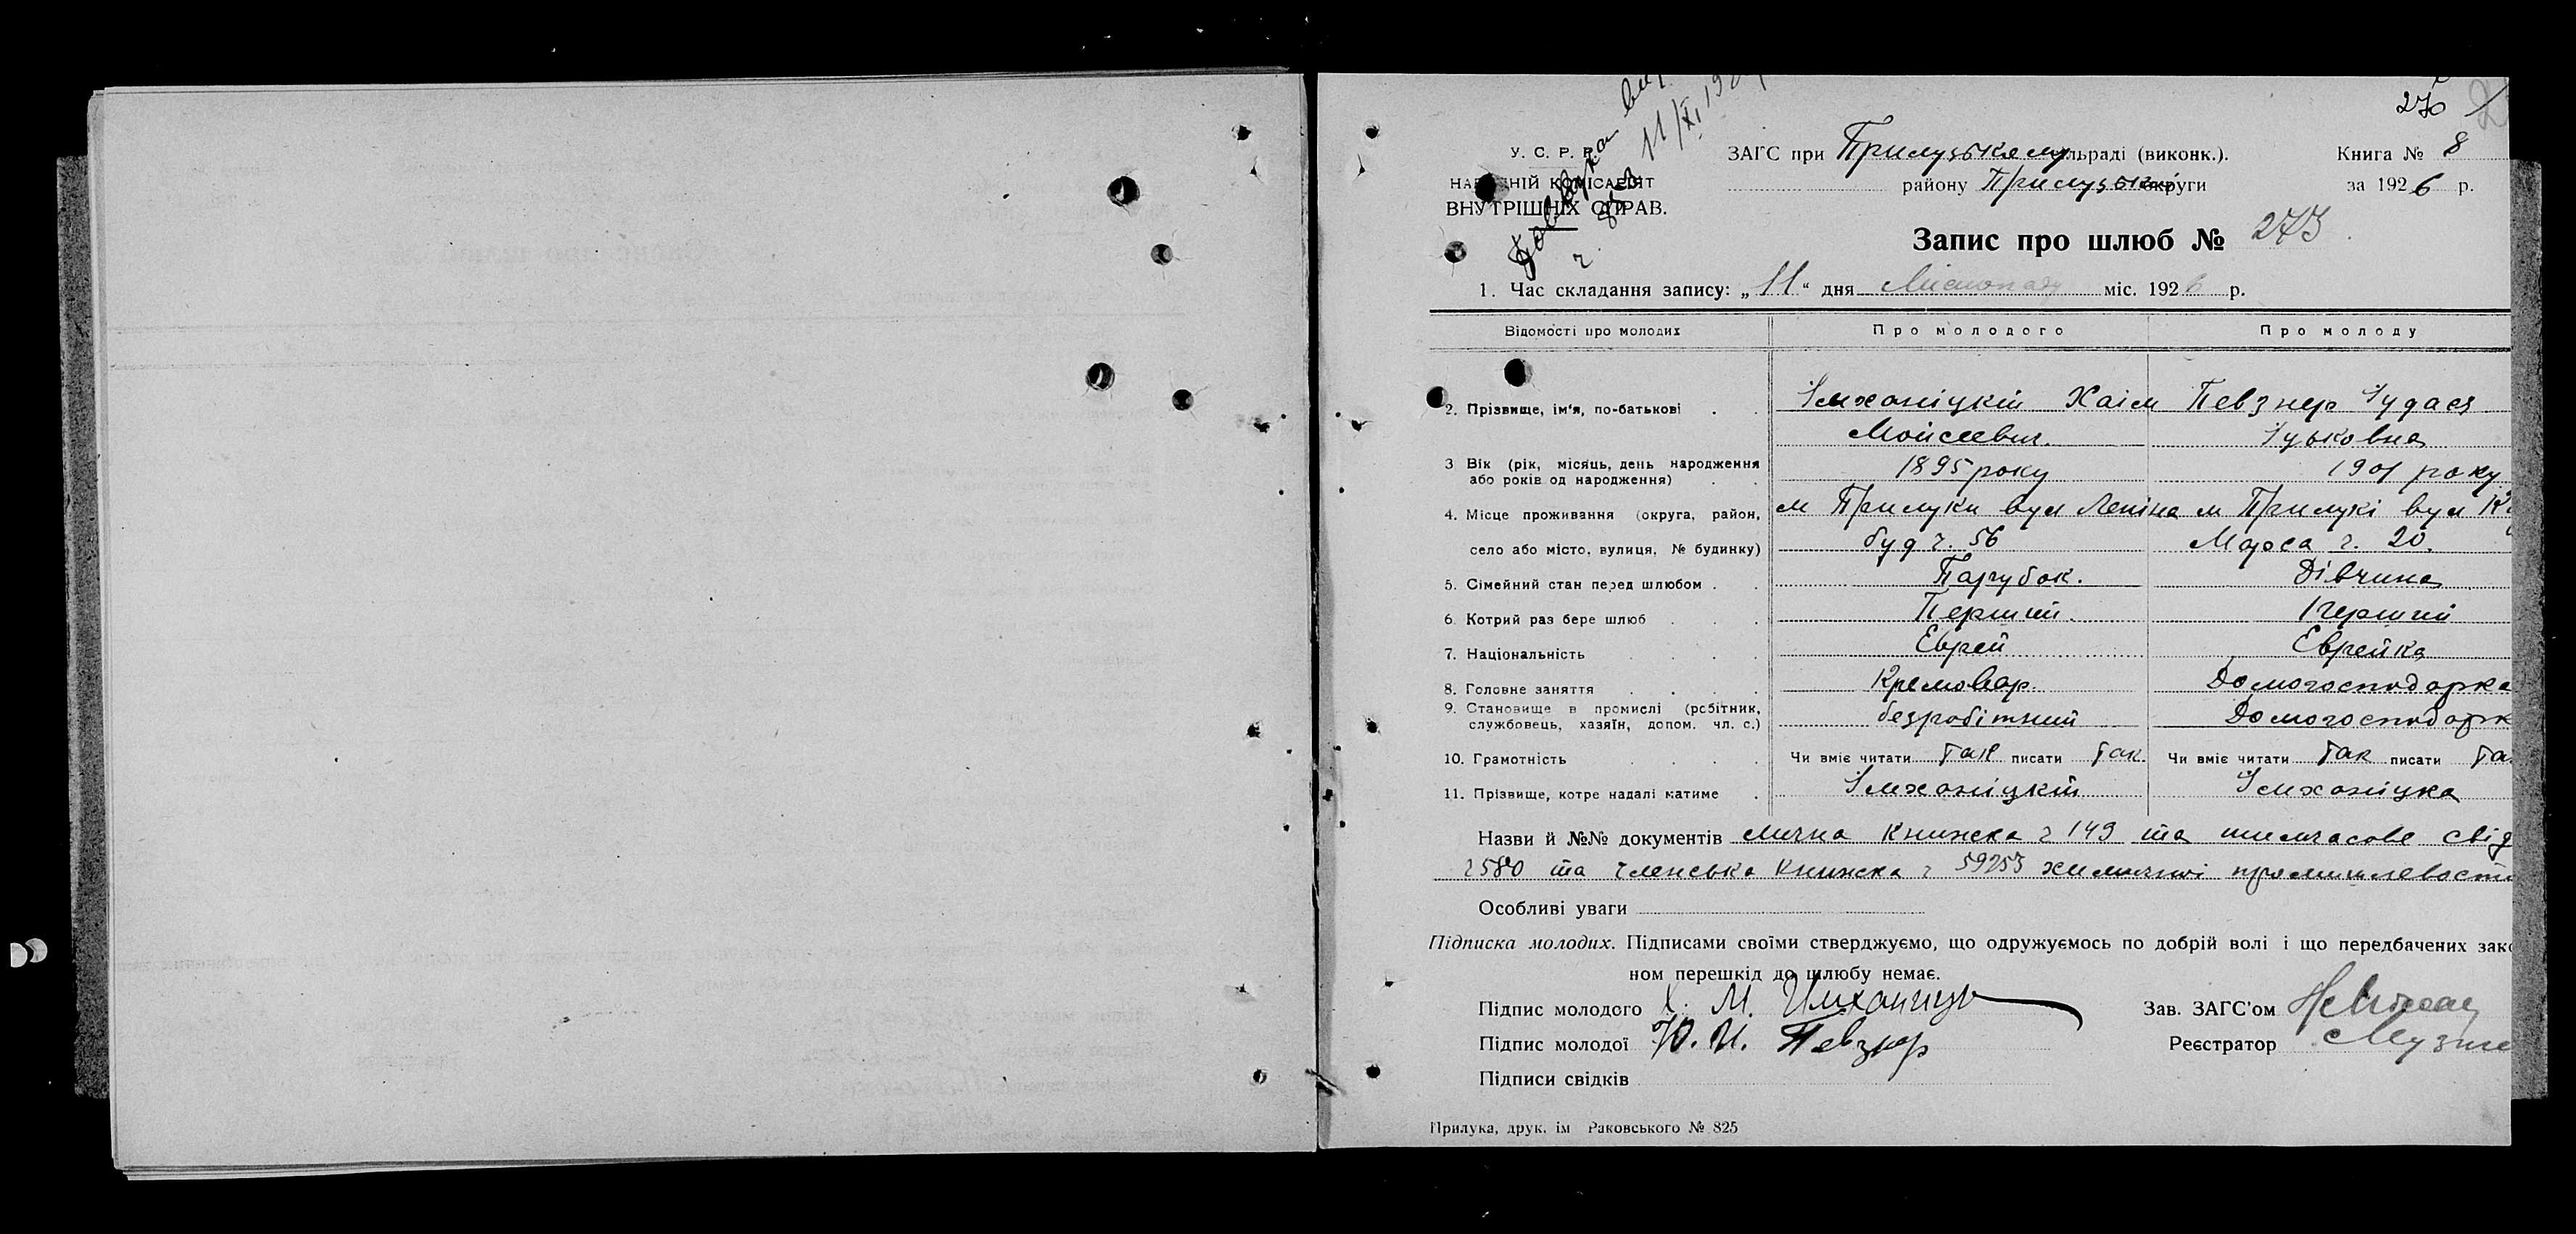 276
У. С. Р. Р.
ЗАГС при Прилуцькому льраді (виконк.).
Книга № 8
НАРОДНІЙ КОМІСАРІЯТ
району Прилуцьк округи
за 1926 р.
ВНУТРІШНІХ СПРАВ.
11/XI
Запис про шлюб № 273
1. Час складання запису: „11“ дня Листопаду міс. 1926 р.
Відомості про молодих
Про молодого
Про молоду
2. Прізвище, ім'я, по-батькові . .
Імханіцкій Хаім
Певзнер Іудася
Мойсеевич.
Іцьковна
3 Вік (рік, місяць, день народження
або років од народження) . .
1895 року
1901 року
4. Місце проживання (округа, район,
м Прилуки вул Леніна
м Прилукі вул К
село або місто, вулиця, № будинку)
буд ч. 56
Маркса ч. 20.
5. Сімейний стан перед шлюбом . .
Парубок.
Дівчина
6. Котрий раз бере шлюб . . .
Перший.
Перший
7. Національність . . .
Еврей
Еврейка
8. Головне заняття . . . .
Кремовар.
Домогосподарка
9. Становище в промислі (робітник,
службовець, хазяїн, допом. чл. с.)
безробітний
Домогосподарк
10. Грамотність . . . .
Чи вміє читати так писати так.
Чи вміє читати так писати та
11. Прізвище, котре надалі матиме .
Імханіцкій
Імханіцка
Назви й №№ документів лична книжка ч 149 та тимчасове свід
ч 580 та членська книжка ч 59253 химичної промишлевости
Особливі уваги
Підписка молодих. Підписами своїми стверджуємо, що одружуємось по добрій волі і що передбачених зако
ном перешкід до шлюбу немає.
Підпис молодого Х. М. Имханицк
Зав. ЗАГС'ом
Підпис молодої Ю. И. Певзнер
Реєстратор
Підписи свідків
Прилука, друк. ім Раковського № 825